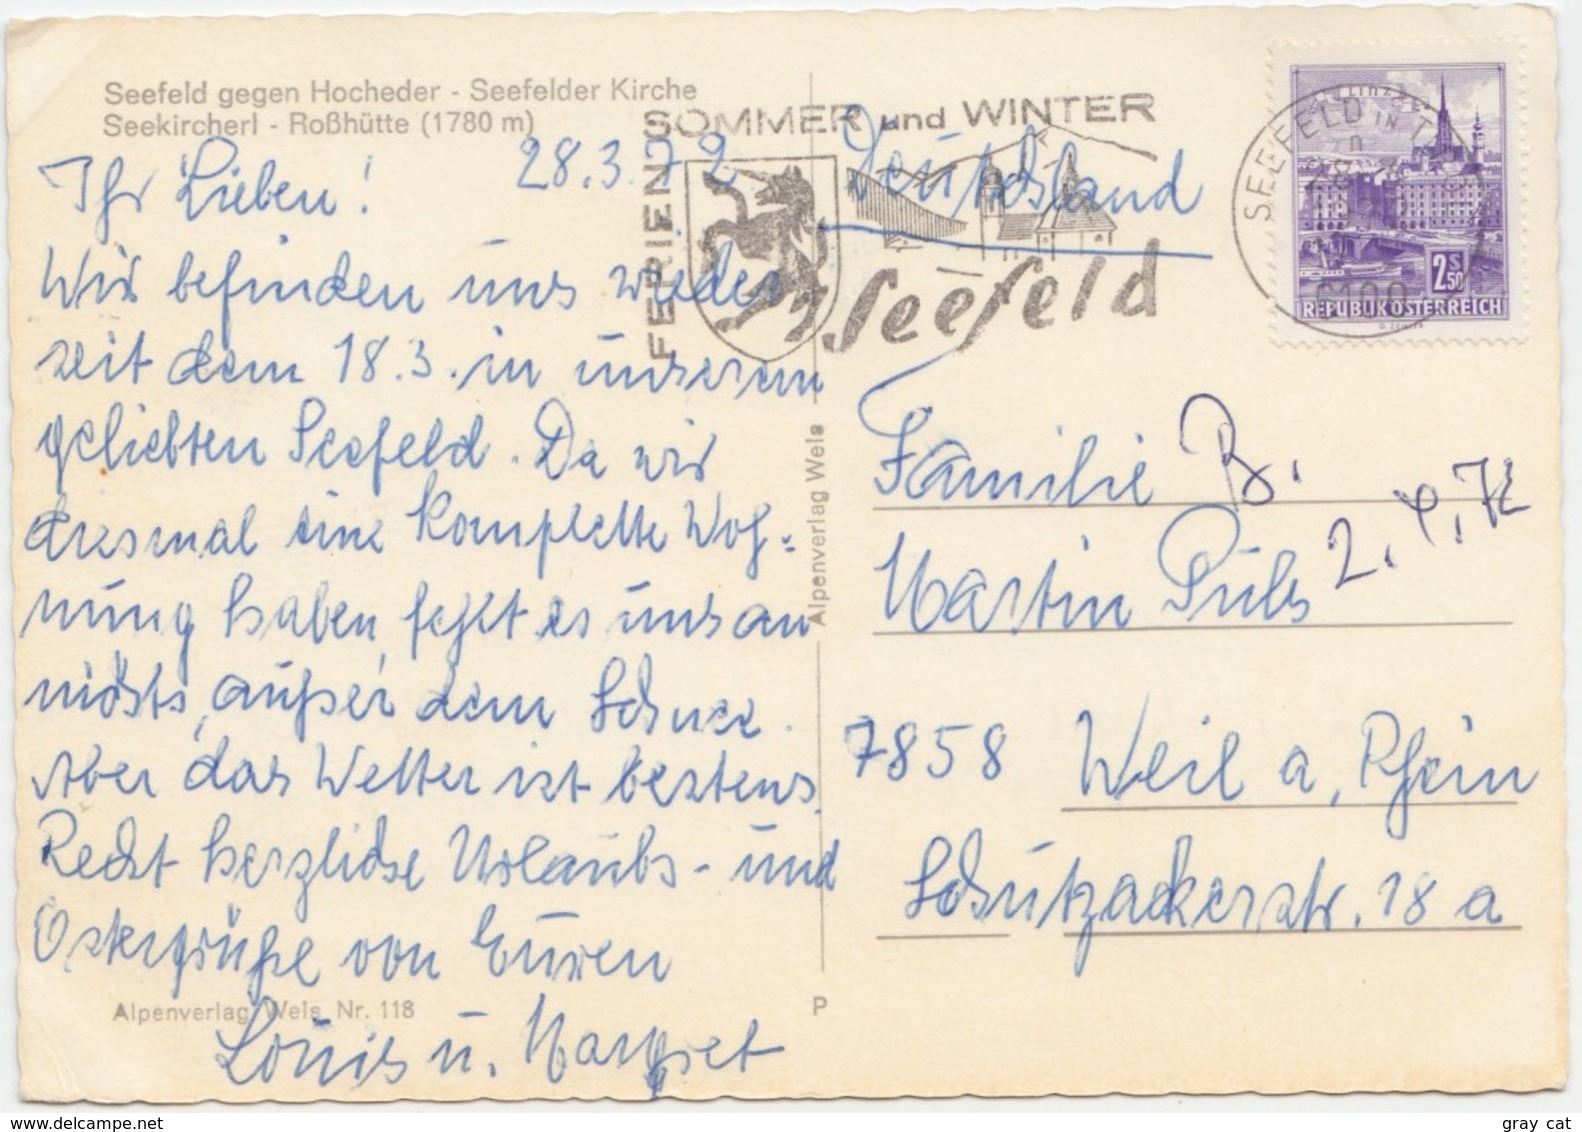 Seefeld gegen Hocheder - Seefelder Kirche
Seekircherl - Roßhütte (1780 m)
28.3.72
Ihr Lieben!
Wir befinden uns wieder
seit dem 18.3. in unserem
geliebten Seefeld. Da wir
diesmal eine komplette Woh=
nung haben, fehlt es uns an
nichts, außer dem Schnee.
Aber das Wetter ist bestens.
Recht herzliche Urlaubs- und
Ostergrüße von Euren
Louis u. Margret
Alpenverlag Wels Nr. 118
Alpenverlag Wels
P
FERIEN SOMMER und WINTER
Seefeld
SEEFELD IN TIROL
6100
Linz
2S50
REPUBLIK ÖSTERREICH
Deutschland
Familie B.
2.4.72
Martin Puls
7858 Weil a. Rhein
Schützackerstr. 18 a
gray cat